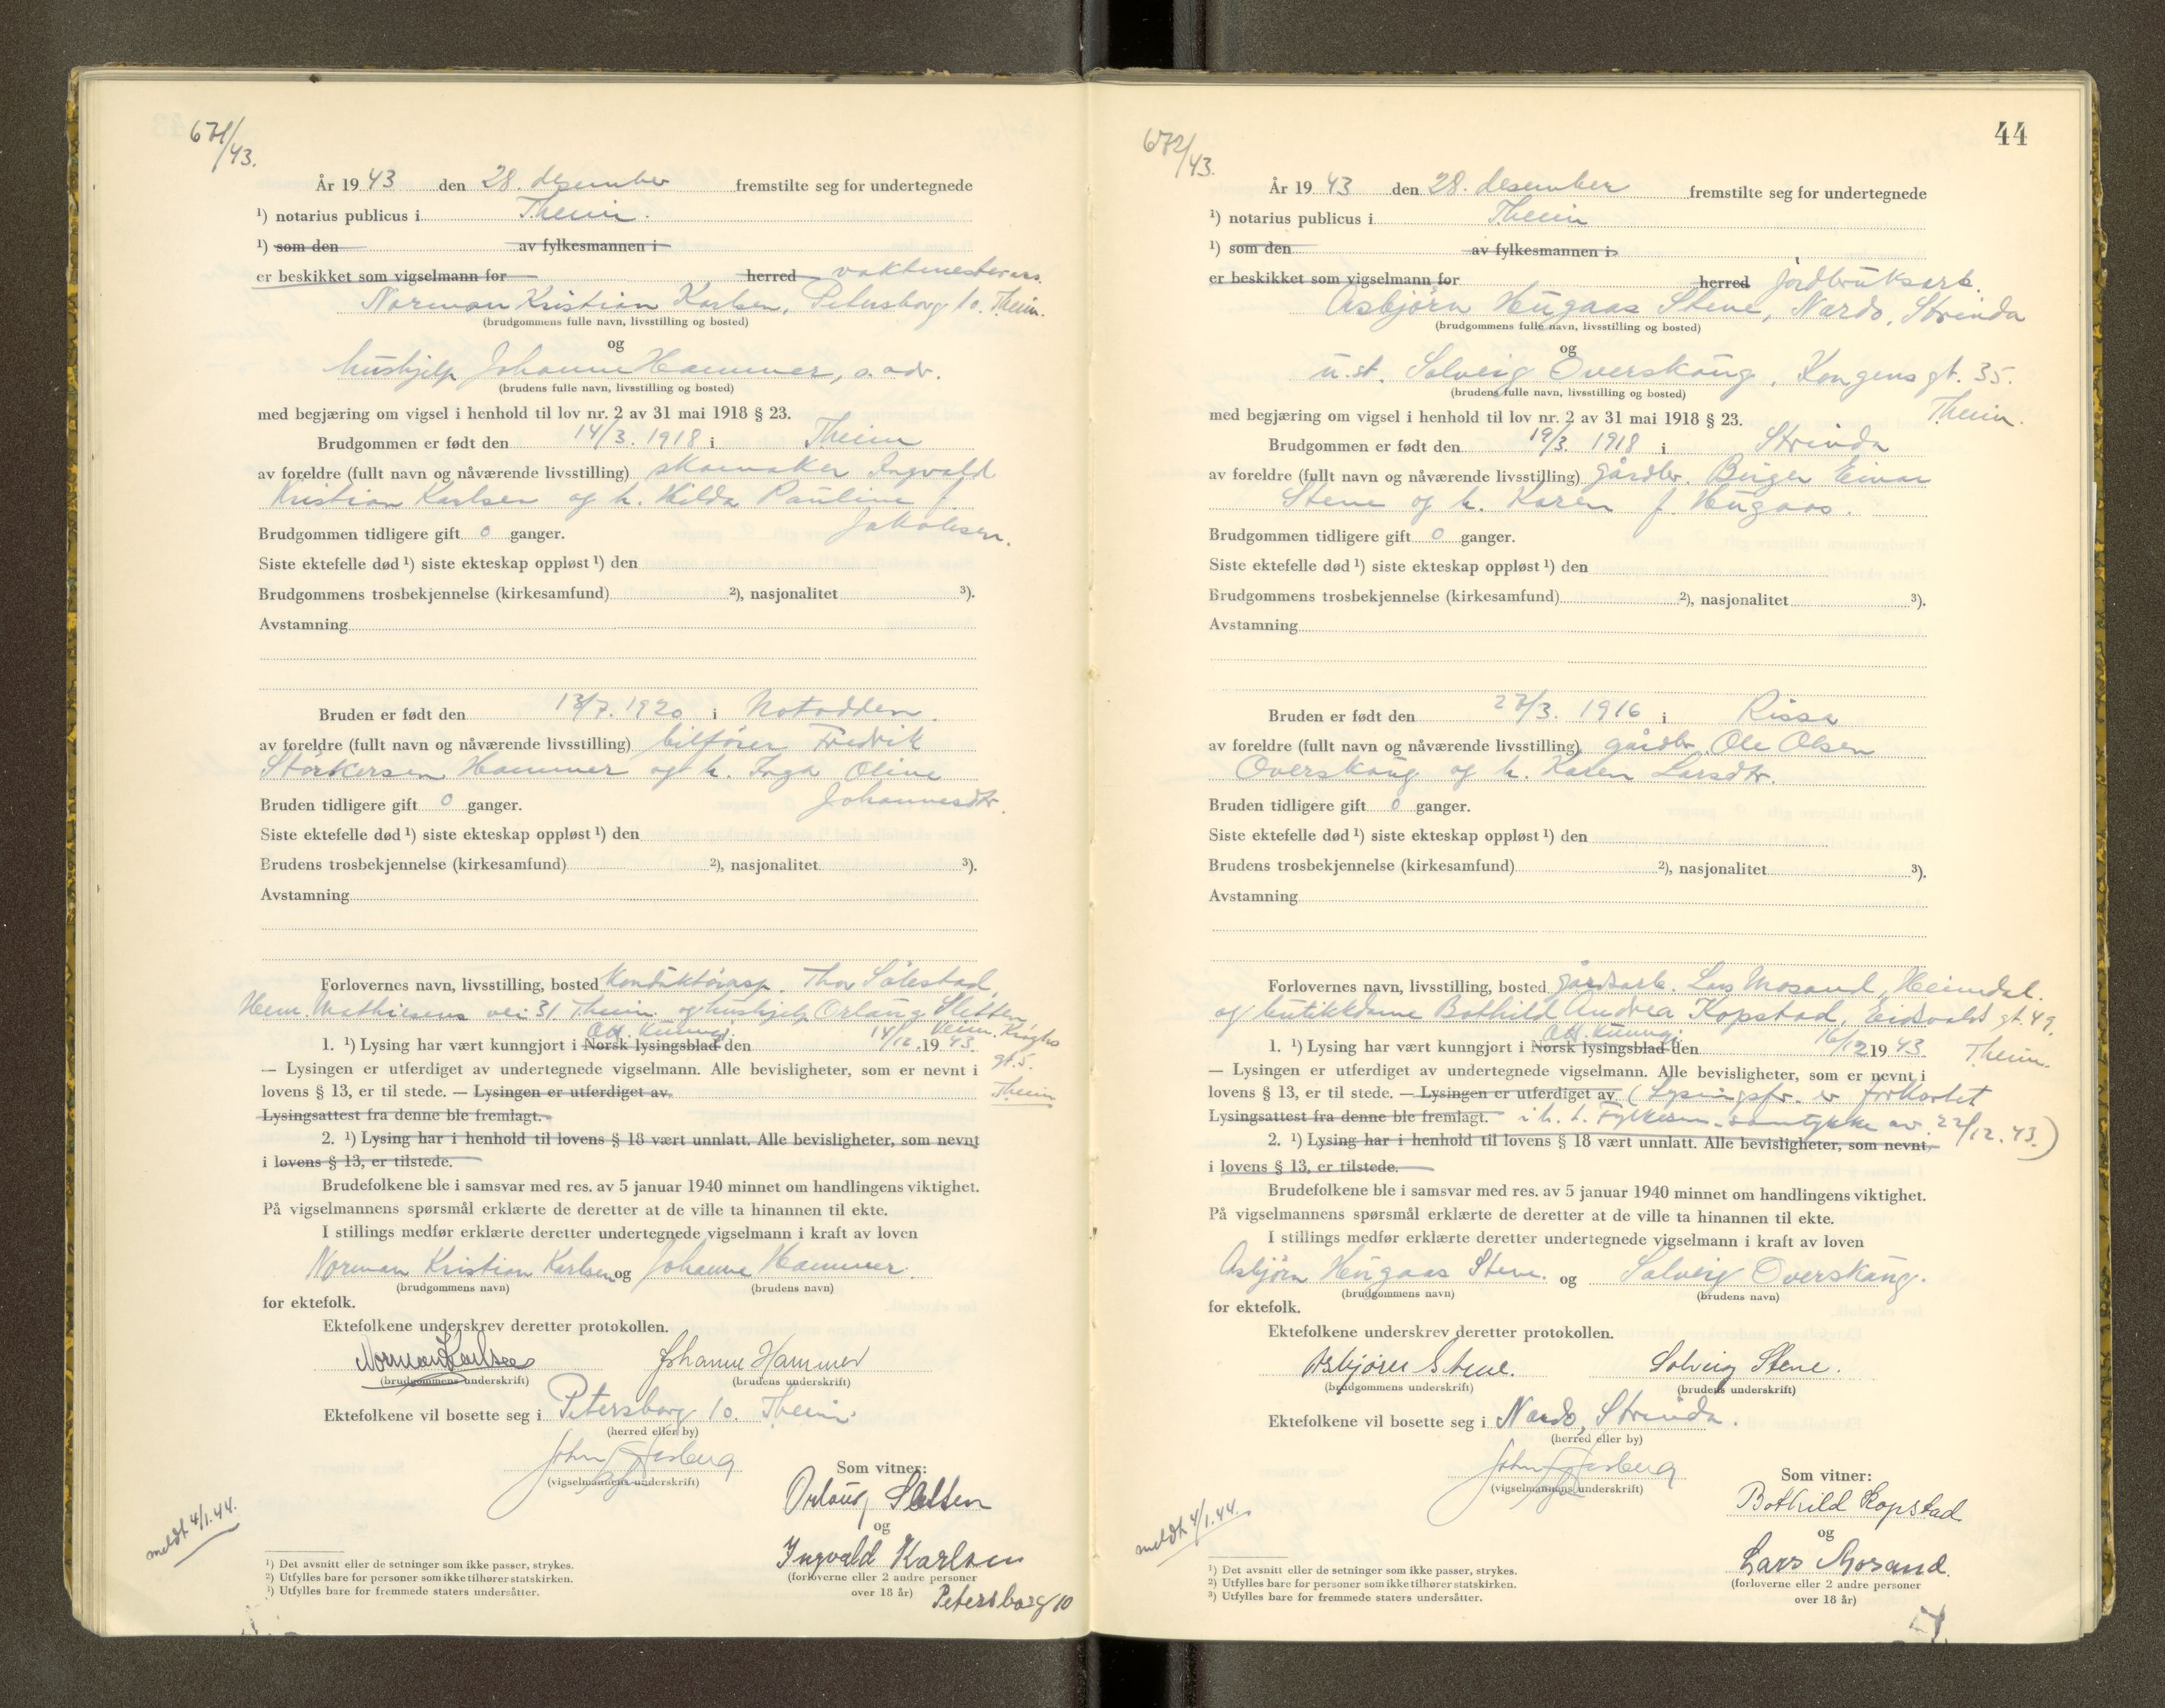 671/43.
År 1943 den 28. desember fremstilte seg for undertegnede
¹) notarius publicus i Theim.
¹) som den av fylkesmannen i
er beskikket som vigselmann for herred vaktmesterass.
Norman Kristian Karlsen, Petersborg 10. Theim.
(brudgommens fulle navn, livsstilling og bosted)
og
hushjelp Johanne Hammer, s. adr.
(brudens fulle navn, livsstilling og bosted)
med begjæring om vigsel i henhold til lov nr. 2 av 31 mai 1918 § 23.
Brudgommen er født den 14/3. 1918 i Theim
av foreldre (fullt navn og nåværende livsstilling) skomaker Ingvald
Kristian Karlsen og h. Hilda Pauline f.
Jakobsen.
Brudgommen tidligere gift 0 ganger.
Siste ektefelle død ¹) siste ekteskap oppløst ¹) den
Brudgommens trosbekjennelse (kirkesamfund) ²), nasjonalitet ³).
Avstamning
Bruden er født den 13/7. 1920 i Notodden.
av foreldre (fullt navn og nåværende livsstilling) bilfører Fredrik
Størkersen Hammer og h. Inga Oline
Johannesdtr.
Bruden tidligere gift 0 ganger.
Siste ektefelle død ¹) siste ekteskap oppløst ¹) den
Brudens trosbekjennelse (kirkesamfund) ²), nasjonalitet ³).
Avstamning
Forlovernes navn, livsstilling, bosted Konduktørasp. Thor Sølestad,
Henr. Mathisens vei 31 Theim og hushjelp Orlaug Sletten,
Off. kunngj. Krighs
1. ¹) Lysing har vært kunngjort i Norsk lysingsblad den 14/12. 1943.
gt. 5.
— Lysingen er utferdiget av undertegnede vigselmann. Alle bevisligheter, som er nevnt i
lovens § 13, er til stede. — Lysingen er utferdiget av Theim
Lysingsattest fra denne ble fremlagt.
2. ¹) Lysing har i henhold til lovens § 18 vært unnlatt. Alle bevisligheter, som nevnt
i lovens § 13, er tilstede.
Brudefolkene ble i samsvar med res. av 5 januar 1940 minnet om handlingens viktighet.
På vigselmannens spørsmål erklærte de deretter at de ville ta hinannen til ekte.
I stillings medfør erklærte deretter undertegnede vigselmann i kraft av loven
Norman Kristian Karlsen og Johanne Hammer.
(brudgommens navn) (brudens navn)
for ektefolk.
Ektefolkene underskrev deretter protokollen.
Norman Karlsen Johanne Hammer
(brudgommens underskrift) (brudens underskrift)
Ektefolkene vil bosette seg i Petersborg 10. Theim.
(herred eller by)
(vigselmannens underskrift)
Som vitner:
Orlaug Sletten
og
Ingvald Karlsen
(forloverne eller 2 andre personer
over 18 år) Petersborg 10
meldt 4/1.44.
¹) Det avsnitt eller de setninger som ikke passer, strykes.
²) Utfylles bare for personer som ikke tilhører statskirken.
³) Utfylles bare for fremmede staters undersåtter.
44
672/43.
År 1943 den 28. desember fremstilte seg for undertegnede
¹) notarius publicus i Theim
¹) som den av fylkesmannen i
er beskikket som vigselmann for herred jordbruksarb.
Asbjørn Hugaas Stene, Nardo, Strinda
(brudgommens fulle navn, livsstilling og bosted)
og
u. st. Solveig Overskaug, Kongens gt. 35.
(brudens fulle navn, livsstilling og bosted)
Theim.
med begjæring om vigsel i henhold til lov nr. 2 av 31 mai 1918 § 23.
Brudgommen er født den 19/3. 1918 i Strinda
av foreldre (fullt navn og nåværende livsstilling) gårdbr. Birger Einar
Stene og h. Karen f. Hugaas.
Brudgommen tidligere gift 0 ganger.
Siste ektefelle død ¹) siste ekteskap oppløst ¹) den
Brudgommens trosbekjennelse (kirkesamfund) ²), nasjonalitet ³).
Avstamning
Bruden er født den 27/3. 1916 i Rissa
av foreldre (fullt navn og nåværende livsstilling) gårdbr. Ole Olsen
Overskaug og h. Karen Larsdtr.
Bruden tidligere gift 0 ganger.
Siste ektefelle død ¹) siste ekteskap oppløst ¹) den
Brudens trosbekjennelse (kirkesamfund) ²), nasjonalitet ³).
Avstamning
Forlovernes navn, livsstilling, bosted gårdsarb. Lars Mosand, Heimdal.
og butikkdame Bothild Andrea Kopstad, Eidsvolds gt. 49.
Off. kunngj.
1. ¹) Lysing har vært kunngjort i Norsk lysingsblad den 16/12 1943 Theim.
— Lysingen er utferdiget av undertegnede vigselmann. Alle bevisligheter, som er nevnt i
lovens § 13, er til stede. — Lysingen er utferdiget av (Lysingsfr. er forkortet
Lysingsattest fra denne ble fremlagt. i h. t. Fylkesm. samtykke av 22/12.43.)
2. ¹) Lysing har i henhold til lovens § 18 vært unnlatt. Alle bevisligheter, som nevnt
i lovens § 13, er tilstede.
Brudefolkene ble i samsvar med res. av 5 januar 1940 minnet om handlingens viktighet.
På vigselmannens spørsmål erklærte de deretter at de ville ta hinannen til ekte.
I stillings medfør erklærte deretter undertegnede vigselmann i kraft av loven
Asbjørn Hugaas Stene. og Solveig Overskaug.
(brudgommens navn) (brudens navn)
for ektefolk.
Ektefolkene underskrev deretter protokollen.
Asbjørn Stene. Solveig Stene.
(brudgommens underskrift) (brudens underskrift)
Ektefolkene vil bosette seg i Nardo, Strinda.
(herred eller by)
(vigselmannens underskrift)
Som vitner:
Bothild Kopstad
og
Lars Mosand.
(forloverne eller 2 andre personer
over 18 år)
meldt 4/1.44.
¹) Det avsnitt eller de setninger som ikke passer, strykes.
²) Utfylles bare for personer som ikke tilhører statskirken.
³) Utfylles bare for fremmede staters undersåtter.